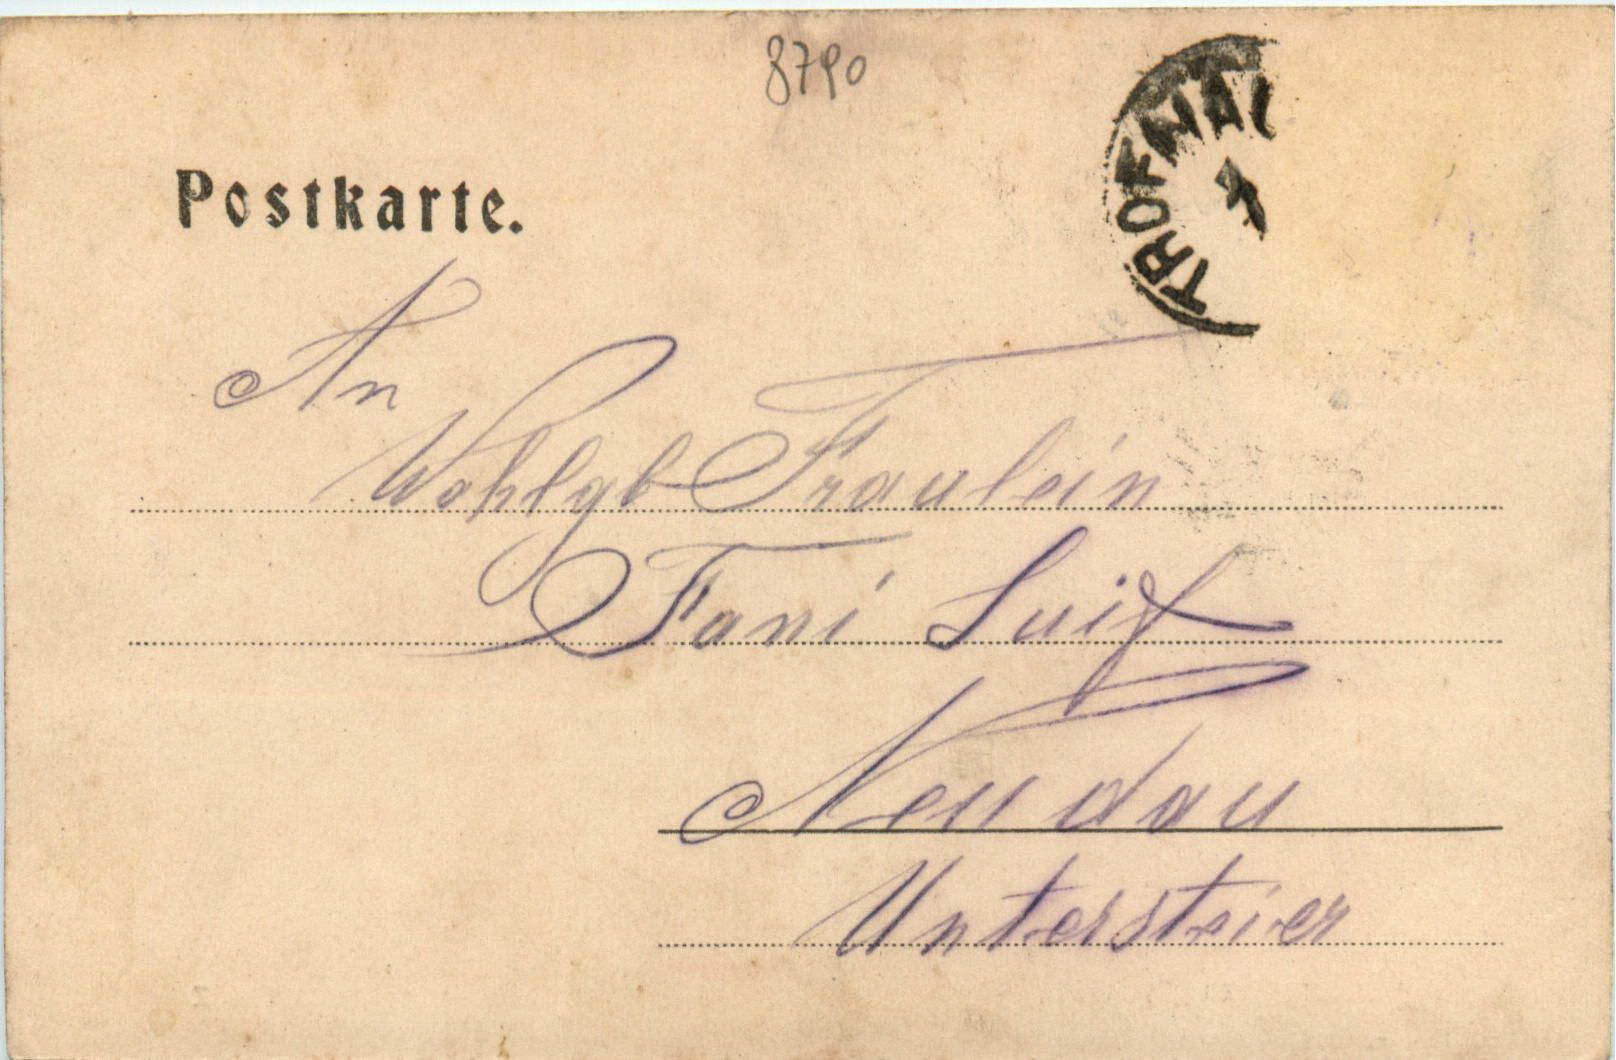 8790
TROFAIA
Postkarte.
An
Wohlgb Fraulein
Fani
Neudau
Untersteier